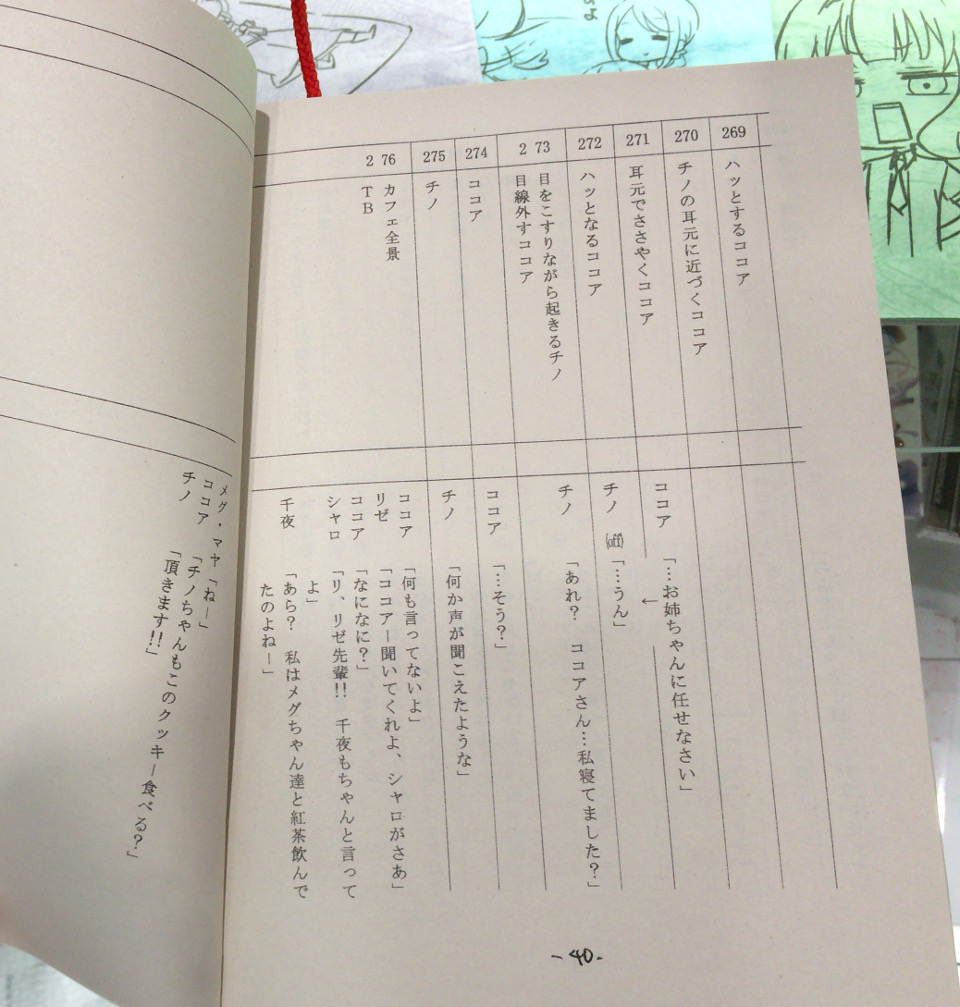 269
ハッとするココア
270
チノの耳元に近づくココア
271
耳元でささやくココア
272
ハッとなるココア
2 73
目をこすりながら起きるチノ
目線外すココア
274
ココア
275
チノ
2 76
カフェ全景
TB
ココア 「…お姉ちゃんに任せなさい」
←
チノ (off) 「…うん」
チノ 「あれ? ココアさん…私寝てました?」
ココア 「…そう?」
チノ 「何か声が聞こえたような」
ココア 「何も言ってないよ」
リゼ 「ココアー聞いてくれよ、シャロがさあ」
ココア 「なになに?」
シャロ 「リ、リゼ先輩!! 千夜もちゃんと言って
よ」
千夜 「あら? 私はメグちゃん達と紅茶飲んで
たのよねー」
- 40 -
メグ・マヤ 「ねー」
ココア 「チノちゃんもこのクッキー食べる?」
チノ 「頂きます!!」